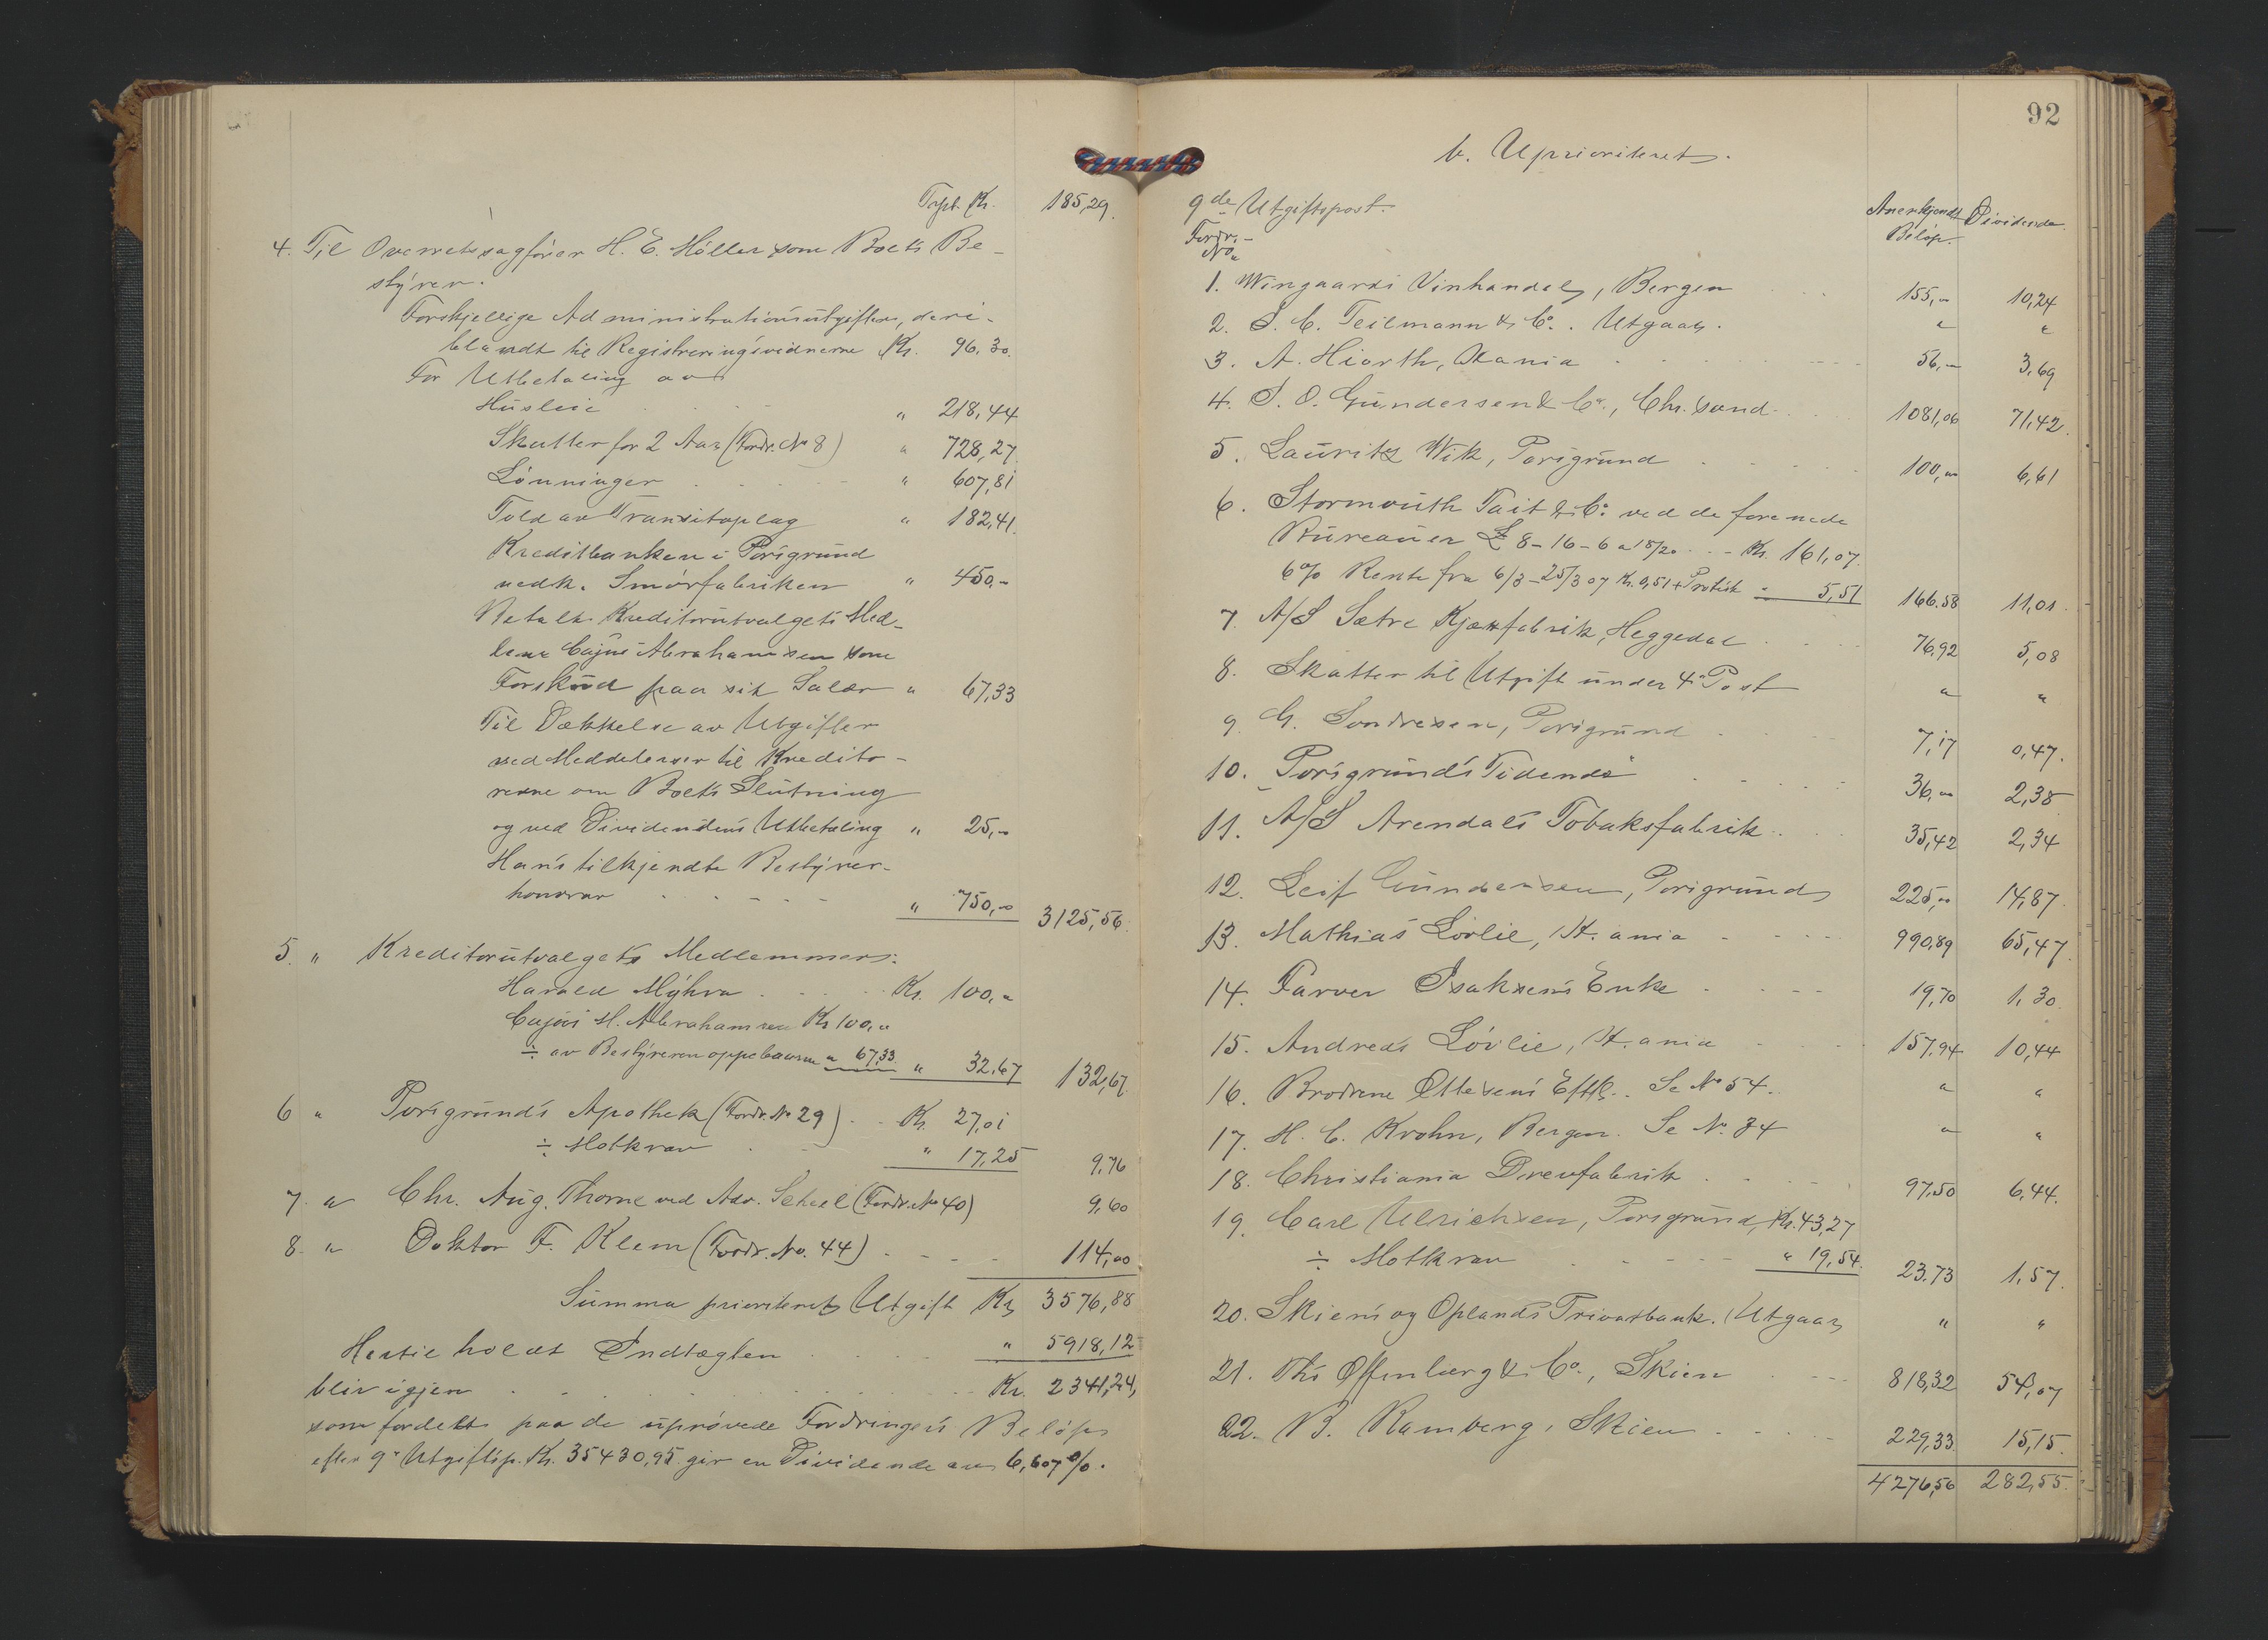 Trpt. Kr. 185,29.
4. Til Overretssagfører H. E. Møller som Boets Be-
styrer.
Forskjellige Administrationsutgifter, deri-
blandt til Registreringsvidnerne Kr. 96,30.
For Utbetaling av
Husleie " 218,44
Skatter for 2 Aar (Fordr. No 8) " 728,27
Lønninger " 607,81
Told av Transitoplag " 182,41.
Kreditbanken i Porsgrund
vedk. Smørfabriken " 450,-
Betalt Kreditorutvalgets Med-
lem Cajus Abrahamsen som
Forskud paa sit Salær " 67,33
Til Dækkelse av Utgifter
ved Meddelelser til Kredito-
rerne om Boets Slutning
og ved Dividendens Utbetaling " 25,-
Hans tilkjendte Bestyrer-
honorar " 750,00 3125,56.
5. " Kreditorutvalgets Medlemmer:
Harald Myhra Kr. 100,"
Cajus M. Abrahamsen Kr 100,"
÷ av Bestyreren oppebaaren " 67,33 " 32,67 132,67.
6 " Porsgrunds Apothek (Fordr. No 29) Kr. 27,01
÷ Motkrav " 17,25 9,76
7. " Chr. Aug. Thorne ved Adv. Scheel (Fordr. No 40) 9,60
8. " Doktor F. Klem (Fordr. No. 44) 114,00
Summa prioritert Utgift Kr. 3576,88
Hertil holdt Indtægten " 5918,12
blir igjen Kr. 2341,24,
som fordelt paa de uprøvede Fordringers Beløp
efter 9. Utgiftsp. Kr. 35430,95 gir en Dividende av 6,607 %.
92
b. Uprioritert.
9de Utgiftspost.
Fordr.-
No.
Anerkjendt
Beløp.
Dividende.
1. Wingaards Vinhandel, Bergen 155,- 10,24
2. S. C. Teilmann & Co. Utgaar. " "
3. A. Hiorth, Kania 56,- 3,69
4. S. O. Gundersen & Co., Chr.sand 1081,06 71,42.
5. Lauritz Wik, Porsgrund 100,00 6,61
6. Stormouth Tait & Co. ved de forenede
Bureauer £ 8-16-6 a 18/20 Kr. 161,07.
6% Rente fra 6/3-25/3 07 Kr. 0,51 + Protest " 5,51 166.58 11,01.
7. A/S Sætre Kjæxfabrik, Heggedal 76,92 5,08
8. Skatter til Utgift under 4. Post " "
9. G. Sondresen, Porsgrund 7,17 0,47.
10. "Porsgrunds Tidende" 36,00 2,38
11. A/S Arendals Tobaksfabrik 35,42 2,34
12. Leif Gundersen, Porsgrund 225,00 14,87.
13. Mathias Løvlie, K.ania 990,89 65,47.
14. Farver Isaksens Enke 19,70 1,30.
15. Andreas Løvlie, K.ania 157,94 10,44
16. Brødrene Ottesens Eftfl. Se No 54. " "
17. H. C. Krohn, Bergen. Se No. 34 " "
18. Christiania Drevfabrik 97,50 6,44.
19. Carl Ulrichsen, Porsgrund, Kr. 43,27
÷ Motkrav " 19,54. 23,73 1,57.
20. Skiens og Oplands Privatbank. Utgaar " "
21. Ths Offenberg & Co., Skien 818,32 54,07
22. B. Ramberg, Skien 229,33 15,15.
4276,56 282,55.